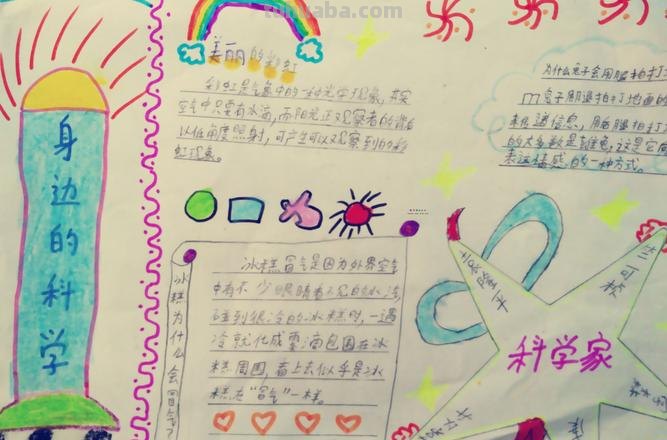 tuhuaba.com
身边的科学
美丽的彩虹
彩虹是气象中的一种光学现象,其实
空气中只要有水滴,而阳光正以观察者的背后
以低角度照射,可产生可以观察到的彩
虹现象。
为什么兔子会用腿拍打
兔子用腿拍打地面的
来传通信息,用后腿拍打
的大多数是雄兔,这是它们
表达情感的一种方式。
冰糕为什么会冒气?
冰糕冒气是因为外界空气
中有不少眼睛看不见的水汽
碰到很冷的冰糕时,一遇
冷就化成雾滴包围在冰
糕周围,看上去似乎是冰
糕在“冒气”一样。
科学家
袁隆平
竺可桢